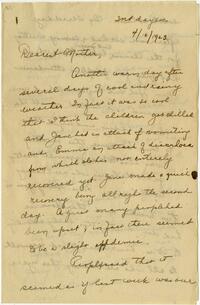 1
2nd day
Dearest Mother,
Another warm day after
several days of cool and rainy
weather. In fact it was so cool
that I think the children got chilled
and Jane had an attack of vomiting
and Emmie an attack of diarrhoea
from which she has not entirely
recovered yet. Jane made a quick
recovery being all right the second
day. A great many people had
been upset, in fact there seemed
to be a slight epidemic.
People said that it
seemed as if last week was our